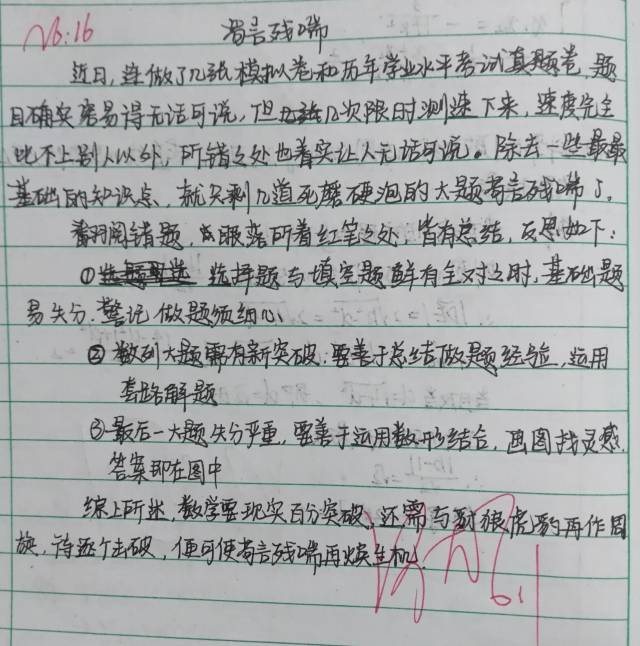 No:16
苟言残喘
近日,连做了几张模拟卷和历年学业水平考试真题卷,题
目确实容易得无话可说,但几次限时测速下来,速度完全
比不上别人以外,所错之处也着实让人无话可说。除去一些最最
基础的知识点、就只剩几道死磨硬泡的大题苟言残喘了。
翻阅错题,眼凝所着红笔之处,皆有总结,反思如下:
① 选择题与填空题鲜有全对之时,基础题
易失分.警记做题须细心
② 数列大题需有新突破:要善于总结做题经验,运用
套路解题
③最后一大题失分严重,要善于运用数形结合,画图找灵感,
答案即在图中
综上所述,数学要现实百分突破,还需与豺狼虎豹再作周
旋,待逐个击破,便可使苟言残喘再焕生机.
6.1